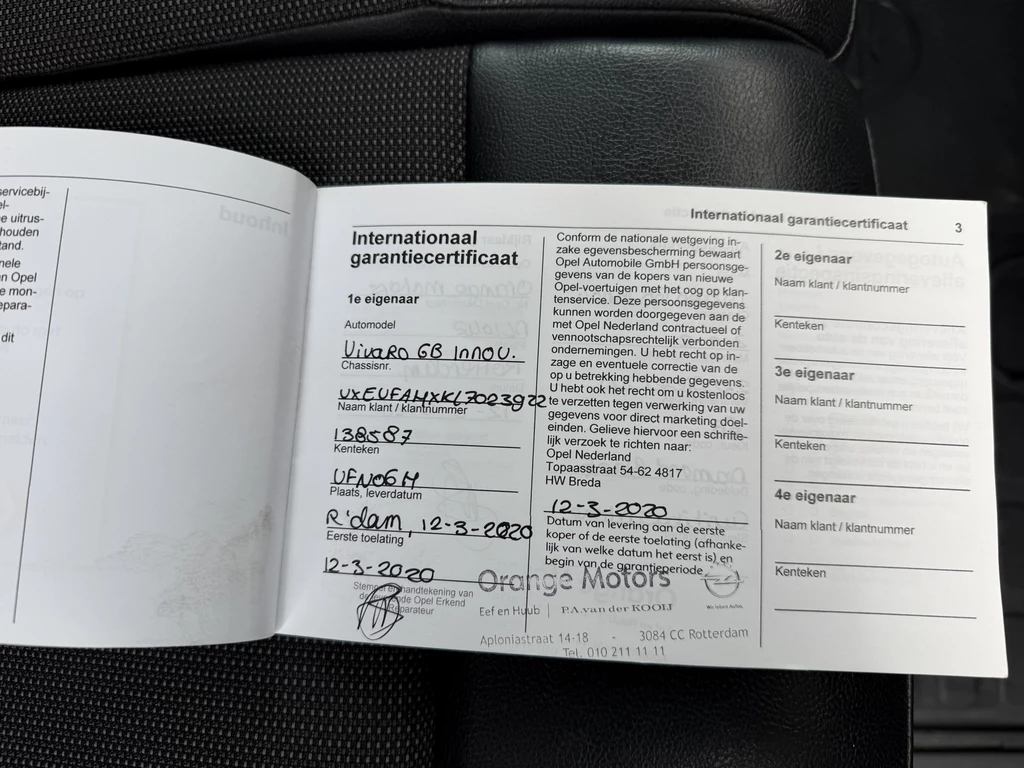 servicebij-
el-
e uitrus-
houden
tand.
nele
n Opel
e mon-
epara-
dit
Inhoud
Internationaal garantiecertificaat 3
Internationaal
garantiecertificaat
1e eigenaar
Automodel
Vivaro GB Innov.
Chassisnr.
VXEVFAHXKL7023922
Naam klant / klantnummer
138587
Kenteken
VFN06H
Plaats, leverdatum
R'dam, 12-3-2020
Eerste toelating
12-3-2020
Stempel en handtekening van
de leverende Opel Erkend
Reparateur
Conform de nationale wetgeving in-
zake egevensbescherming bewaart
Opel Automobile GmbH persoonsge-
gevens van de kopers van nieuwe
Opel-voertuigen met het oog op klan-
tenservice. Deze persoonsgegevens
kunnen worden doorgegeven aan de
met Opel Nederland contractueel of
vennootschapsrechtelijk verbonden
ondernemingen. U hebt recht op in-
zage en eventuele correctie van de
op u betrekking hebbende gegevens.
U hebt ook het recht om u kosteloos
te verzetten tegen verwerking van uw
gegevens voor direct marketing doel-
einden. Gelieve hiervoor een schrifte-
lijk verzoek te richten naar:
Opel Nederland
Topaasstraat 54-62 4817
HW Breda
12-3-2020
Datum van levering aan de eerste
koper of de eerste toelating (afhanke-
lijk van welke datum het eerst is) en
begin van de garantieperiode
Orange Motors
Eef en Huub | P.A. van der KOOIJ
Wir leben Autos.
Aploniastraat 14-18 - 3084 CC Rotterdam
Tel. 010 211 11 11
2e eigenaar
Naam klant / klantnummer
Kenteken
3e eigenaar
Naam klant / klantnummer
Kenteken
4e eigenaar
Naam klant / klantnummer
Kenteken